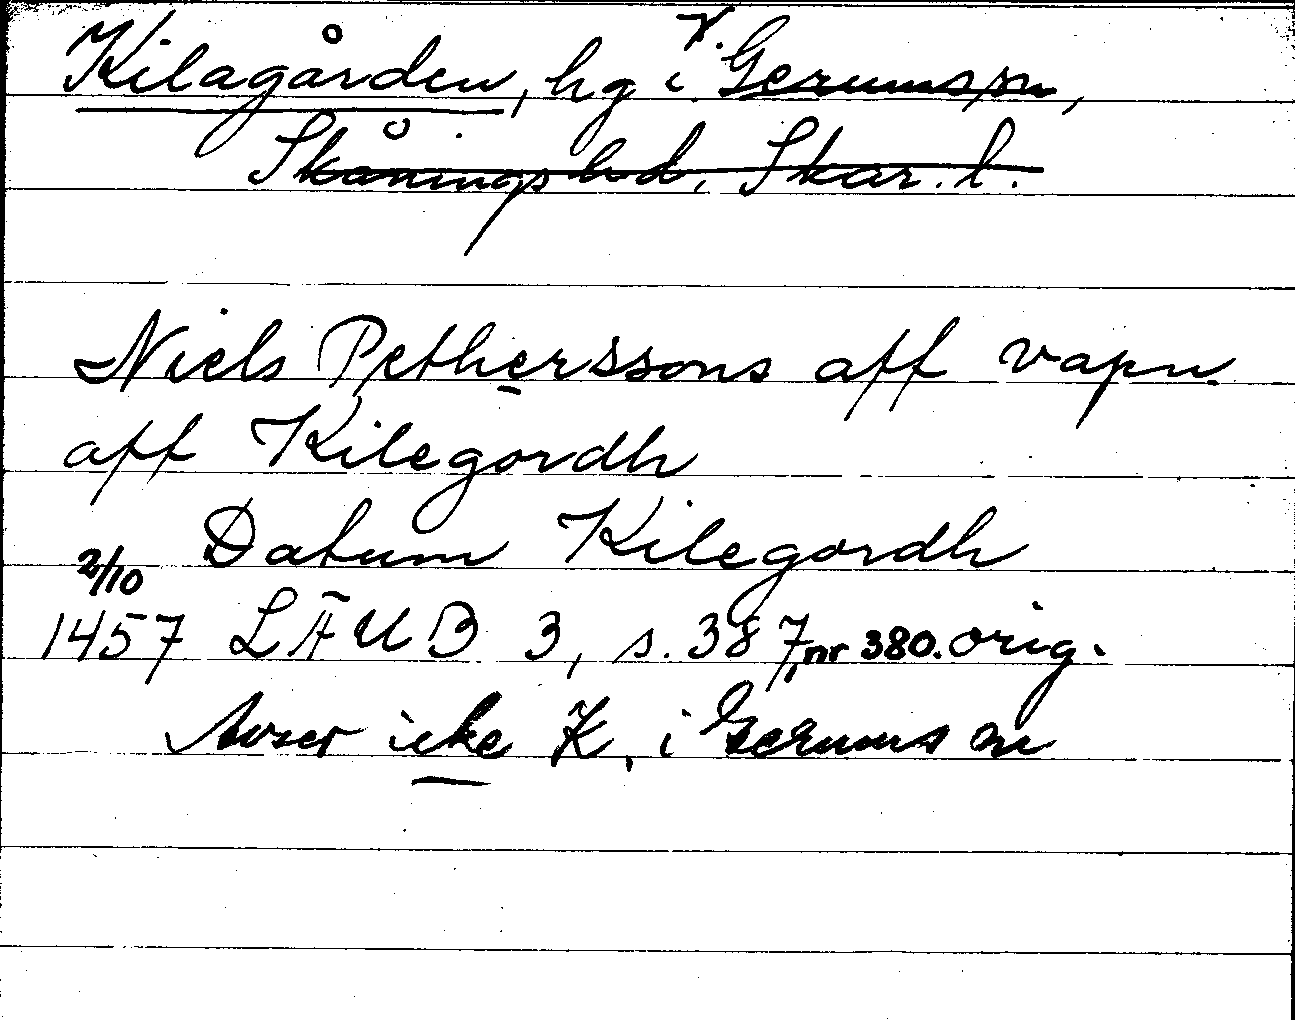 Kilagården, hg i V. Gerums sn,
Skånings hd, Skar. l.
Niels Petherssons aff vapn
aff Kilegordh
Datum Kilegordh
2/10
1457 LÄUB 3, s. 387, nr 380. orig.
Avser icke K. i Gerums sn